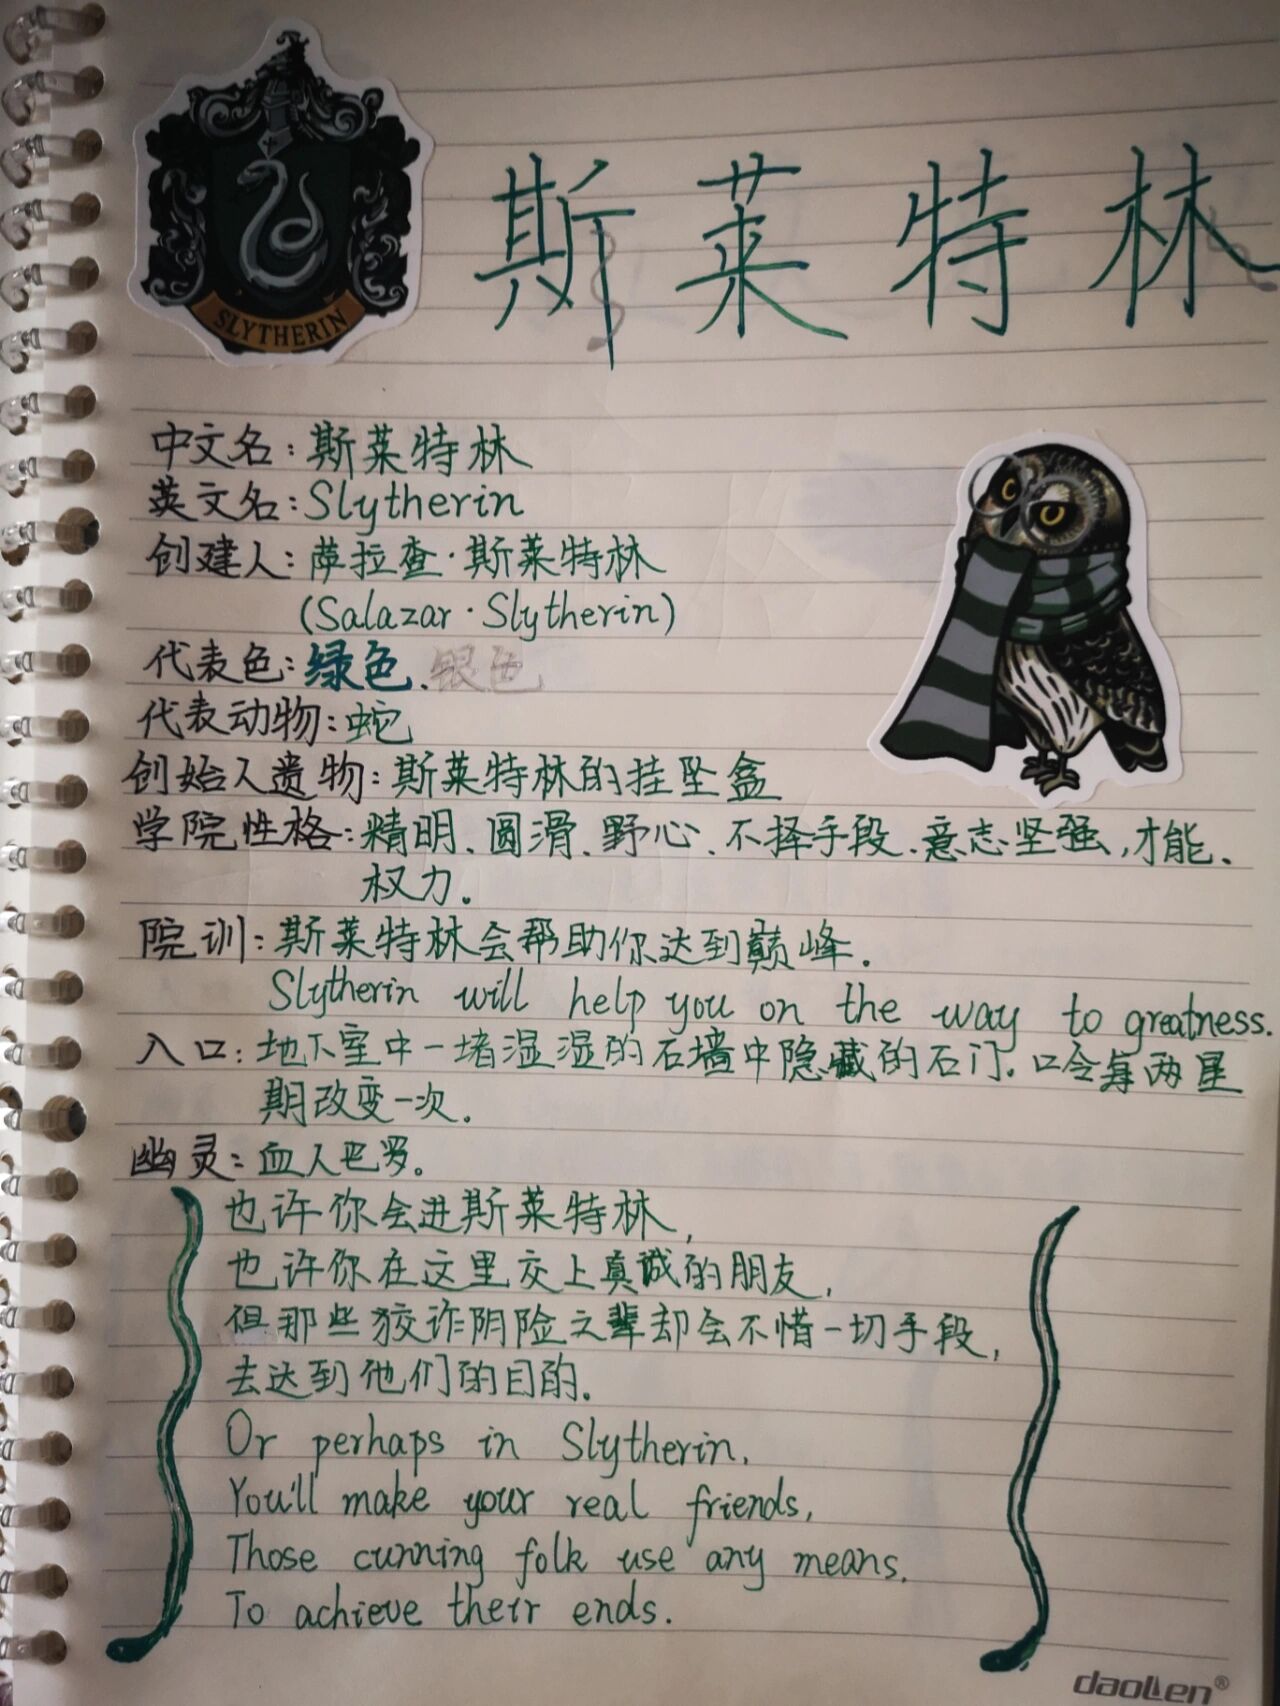 SLYTHERIN
斯莱特林
中文名:斯莱特林
英文名:Slytherin
创建人:萨拉查·斯莱特林
(Salazar·Slytherin)
代表色:绿色、银色
代表动物:蛇
创始人遗物:斯莱特林的挂坠盒
学院性格:精明、圆滑、野心、不择手段、意志坚强,才能、
权力。
院训:斯莱特林会帮助你达到巅峰.
Slytherin will help you on the way to greatness.
入口:地下室中一堵湿湿的石墙中隐藏的石门.口令每两星
期改变一次.
幽灵:血人巴罗。
也许你会进斯莱特林,
也许你在这里交上真诚的朋友,
但那些狡诈阴险之辈却会不惜一切手段,
去达到他们的目的.
Or perhaps in Slytherin.
You'll make your real friends,
Those cunning folk use any means.
To achieve their ends.
daolen®